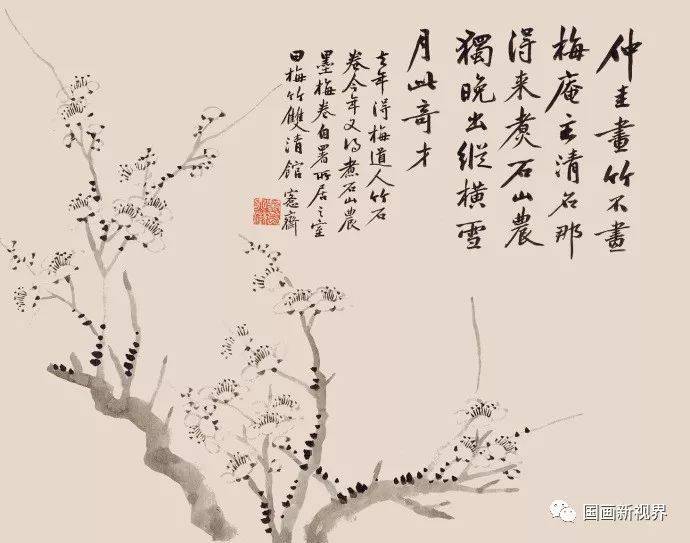 仲圭畫竹不畫
梅庵主清名那
得来煮石山農
獨晚出縱橫雪
月此奇才
去年得梅道人竹石
卷今年又得煮石山農
墨梅卷自署所居之室
曰梅竹雙清館 愙齋
国画新视界